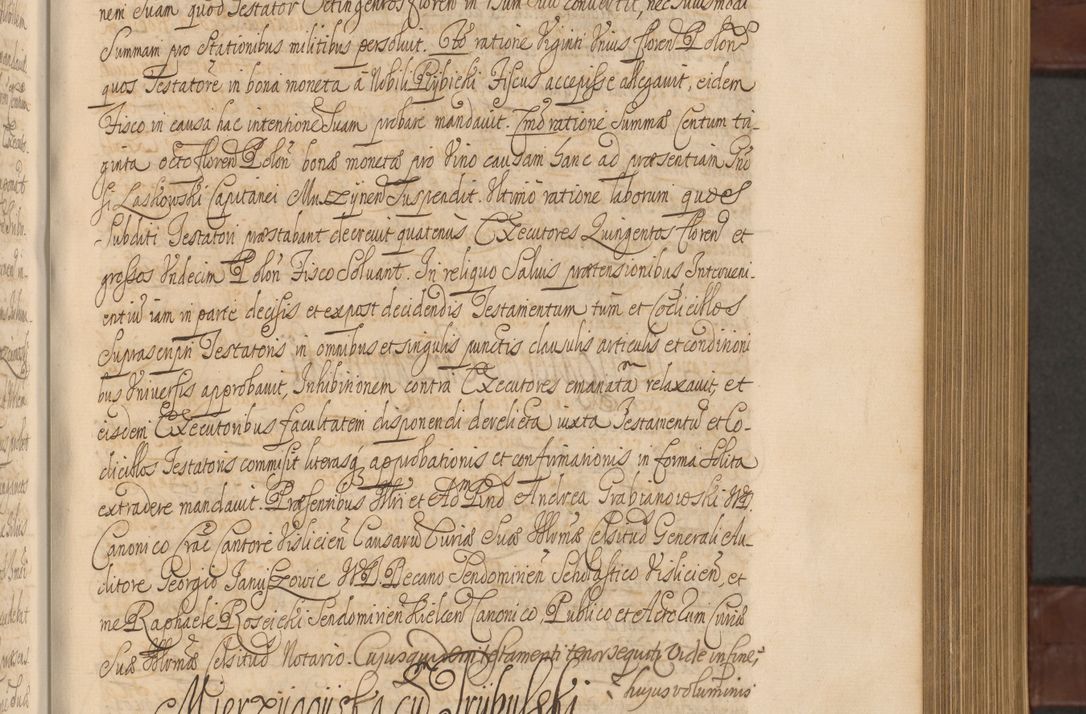 nem suam quod Testator Octingentos floren in suum convertit, nec huiusmodi
Summam pro Stationibus militibus persoluit. Itõ ratione Viginti Unius floren Polon
quos Testatore in bona moneta a Nobili Rybicki Fiscus accepisse allegavit, eidem
Fisco in causa hac intentionem suam probare mandavit. ratione Summæ Centum tri-
ginta octo floren Polon bonæ monetæ pro Vino causam hanc ad præsentiam Gnõ
Laskowski Capitanei Muszynen Suspendit. Ultimõ ratione laborum quos
Subditi Testatori præstabant decrevit quatenus Executores Quingentos floren et
grossos Undecim Polon Fisco Solvant. In reliquo Salvis prætensionibus Interveni-
entiũ iam in parte decisis et ex post decidendis Testamentum tum et Codicillos
Suprascripti Testatoris in omnibus et singulis punctis clausulis articulis et conditioni
bus Universis approbavit, Inhibitionem contra Executores emanatã relaxavit, et
eisdem Executoribus facultatem disponendi derelicta iuxta Testamentũ et Co-
dicillos Testatoris commisit literasq approbationis et confirmationis in forma Solita
extradere mandavit. Præsentibus Illri et Ad Rnd Andrea Grabianowski
Canonico Crac Cantore Vislicien Causarũ Curiæ Suæ Illrmæ Celsitud Generali Au-
ditore Georgio Januszowic Decano Sendomirien Scholastico Vislicien, et
me Raphaele Roscicki Sendomirien Kielcen Canonico, Publico et Actorum Curiæ
Suæ Illrmæ Celsitud Notario. Cujusquidem testamenti tenor sequitr Vide in fine
hujus voluminis
Mierzyiowska cũ Trybulski